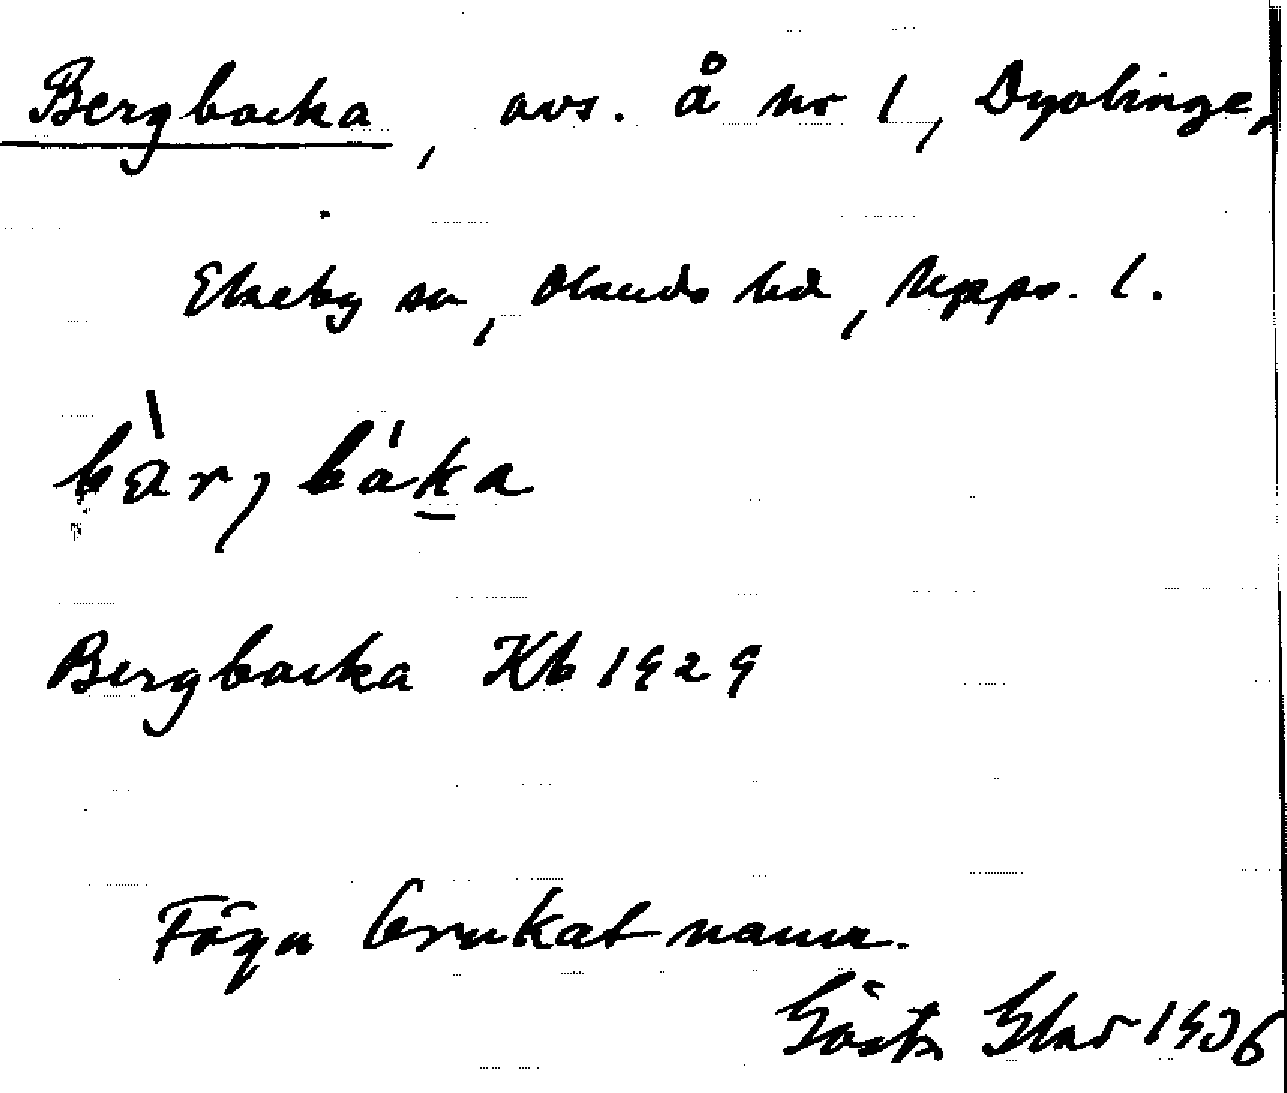 Bergbacka, avs. å nr 1, Dyvlinge,
Ekeby sn, Olands hd, Upps. l.
bàrjbáka
Bergbacka Kb 1929
Föga brukat namn.
Gösta Ekar 1936